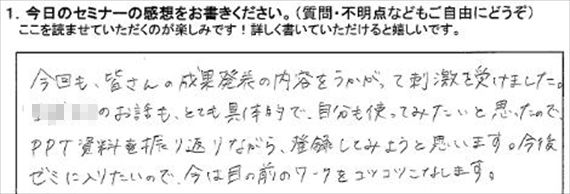 1. 今日のセミナーの感想をお書きください。（質問・不明点などもご自由にどうぞ）
ここを読ませていただくのが楽しみです！詳しく書いていただけると嬉しいです。
今回も、皆さんの成果発表の内容をうかがって刺激を受けました。
のお話も、とても具体的で、自分も使ってみたいと思ったので、
PPT資料を振り返りながら、登録してみようと思います。今後
ゼミに入りたいので、今は目の前のワークをコツコツこなします。